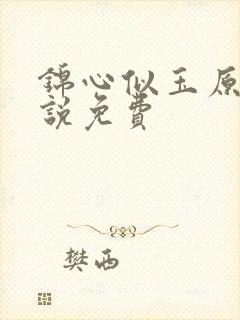 錦心似玉原
說免費
樊西